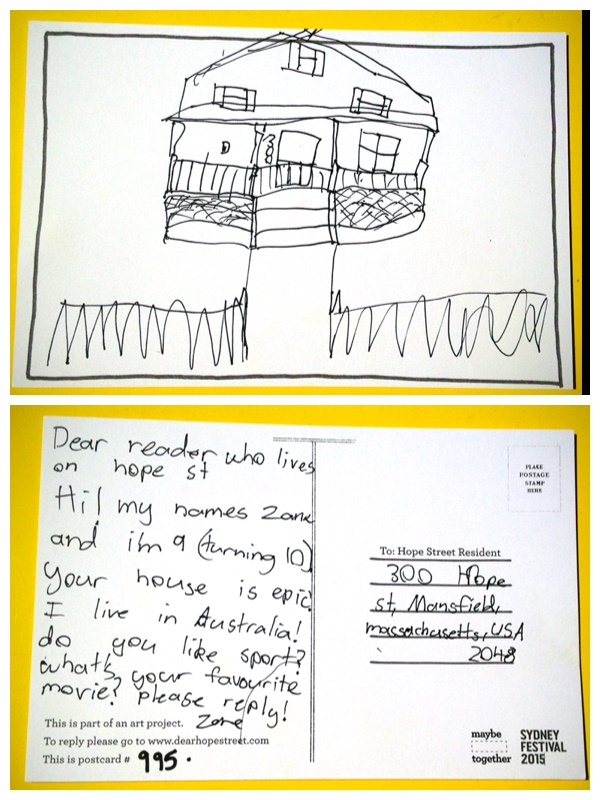 D
Dear reader who lives
on hope st
Hi! my names Zane
and im 9 (turning 10)
your house is epic!
I live in Australia!
do you like sport?
what's your favourite
movie? please reply!
Zane
This is part of an art project.
To reply please go to www.dearhopestreet.com
This is postcard # 995.
PLACE
POSTAGE
STAMP
HERE
To: Hope Street Resident
300 Hope
st, Mansfield,
massachusetts, USA
2048
maybe
together
SYDNEY
FESTIVAL
2015